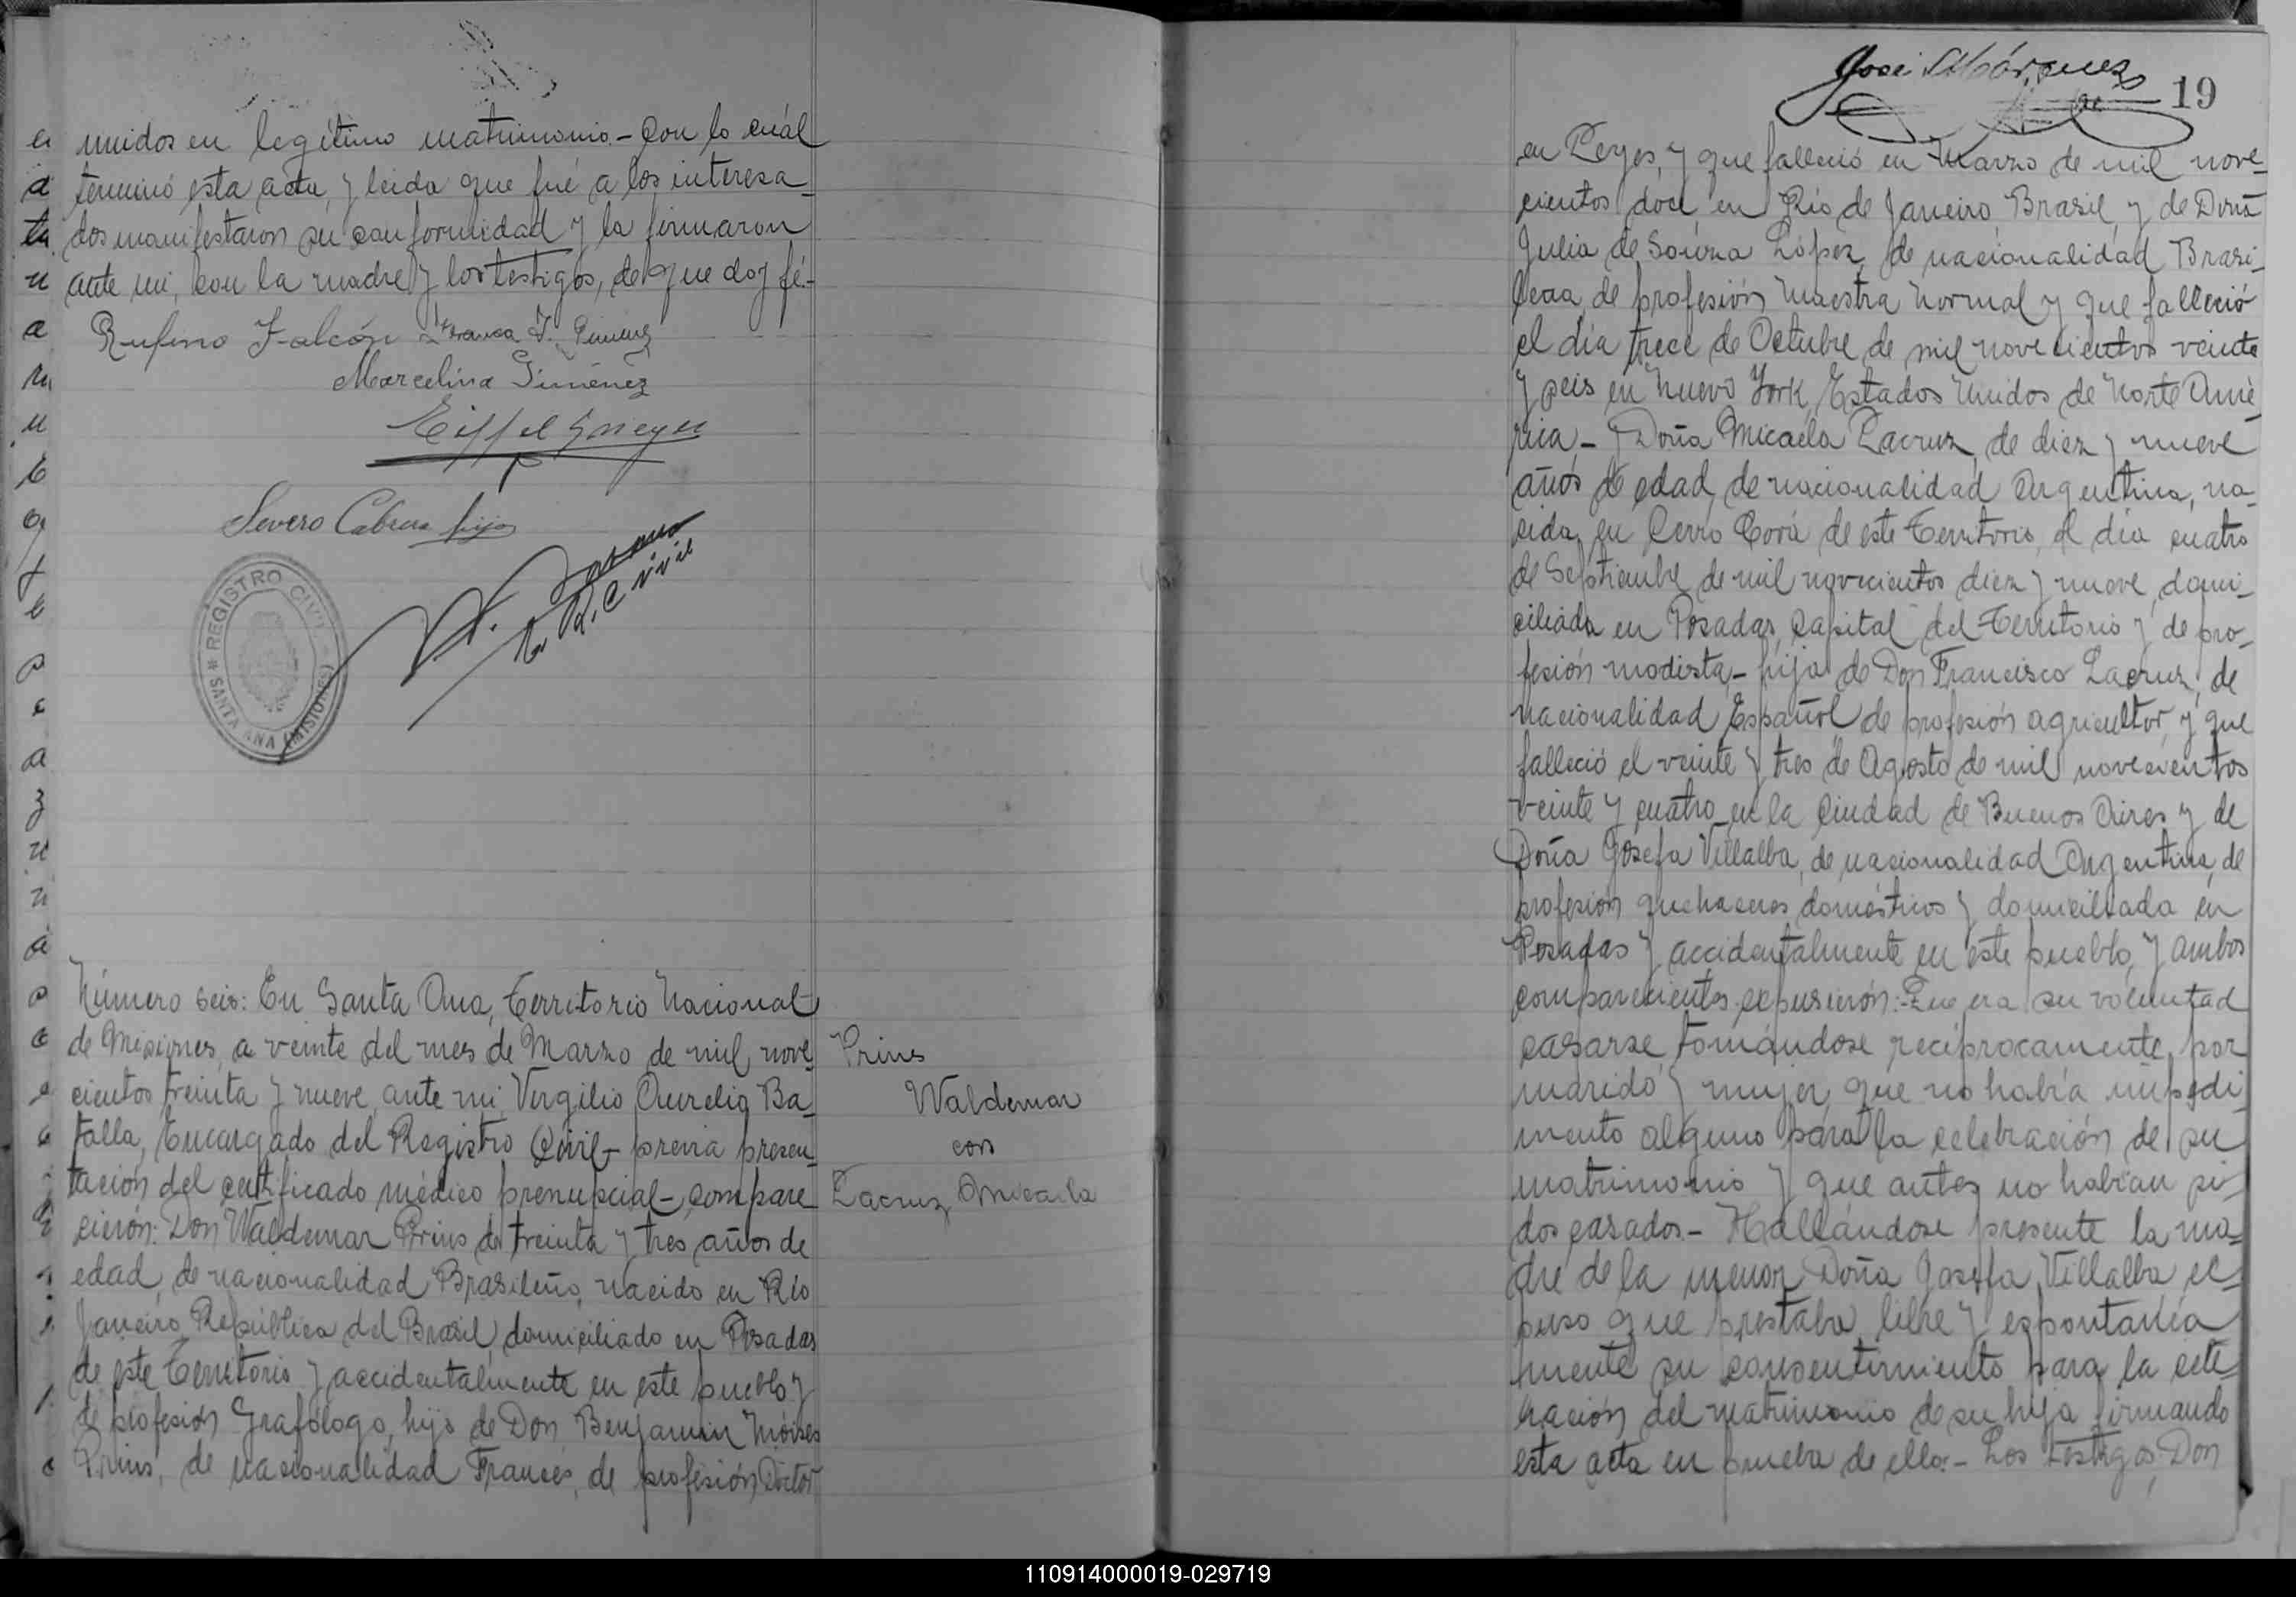 unidos en legítimo matrimonio.- Con lo cuál
terminó esta acta, y leida que fué a los interesa-
dos manifestaron su conformidad y la firmaron
ante mi, con la madre y los testigos, de que doy fé.-
Rufino Falcón
Marcelina Giménez
Severo Cabrera hijo
R. Civil
REGISTRO CIVIL
SANTA ANA (MISIONES)
Número seis: En Santa Ana, Territorio Nacional
de Misiones, a veinte del mes de Marzo de mil nove-
cientos treinta y nueve, ante mi Virgilio Aurelio Ba-
talla, Encargado del Registro Civil- previa presen-
tación del certificado médico prenupcial-, compare
cieron: Don Waldemar Prins de treinta y tres años de
edad, de nacionalidad Brasileño, nacido en Río
Janeiro República del Brasil, domiciliado en Posadas
de este Territorio y accidentalmente en este pueblo y
de profesión Grafólogo, hijo de Don Benjamin Móises
Prins, de nacionalidad Francés, de profesión Doctor
Prins
Waldemar
con
Lacruz Micaela
José Márquez
19
en Leyes, y que falleció en Marzo de mil nove-
cientos doce en Río de Janeiro, Brasil y de Doña
Julia de Souza López, de nacionalidad Brasi-
lera, de profesión Maestra Normal y que falleció
el día trece de Octubre de mil novecientos veinte
y seis en Nuevo York, Estados Unidos de Norte Amé-
rica.- y Doña Micaela Lacruz, de diez y nueve
años de edad, de nacionalidad Argentina, na-
cida en Cerro Corá de este Territorio, el día cuatro
de Septiembre de mil novecientos diez y nueve, domi-
ciliada en Posadas, Capital del Territorio y de pro-
fesión modista,- hija de Don Francisco Lacruz, de
nacionalidad Español de profesión agricultor, y que
falleció el veinte y tres de Agosto de mil novecientos
veinte y cuatro en la Ciudad de Buenos Aires y de
Doña Josefa Villalba, de nacionalidad Argentina, de
profesión quehaceres domésticos y domiciliada en
Posadas y accidentalmente en este pueblo, y ambos
comparecientes expusieron: Que era su voluntad
casarse, tomándose recíprocamente, por
marido y mujer, que no había impedi-
mento alguno para la celebración de su
matrimonio y que antes no habían si-
dos casados.- Hallándose presente la ma-
dre de la menor, Doña Josefa Villalba, ex-
puso que prestaba libre y espontanea
mente su consentimiento para la cele-
bración del matrimonio de su hija firmando
esta acta en prueba de ello.- Los testigos, Don
110914000019-029719